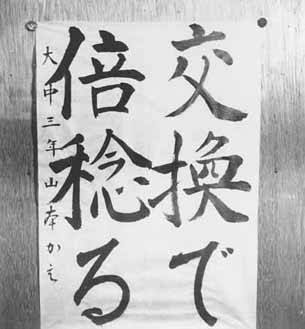 交換で
倍稔る
大中三年山本かえ